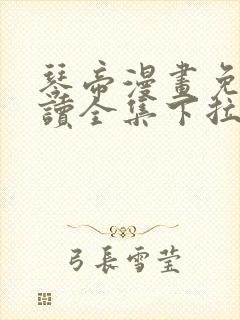 琴帝漫畫免
讀全集下拉
弓長雪瑩